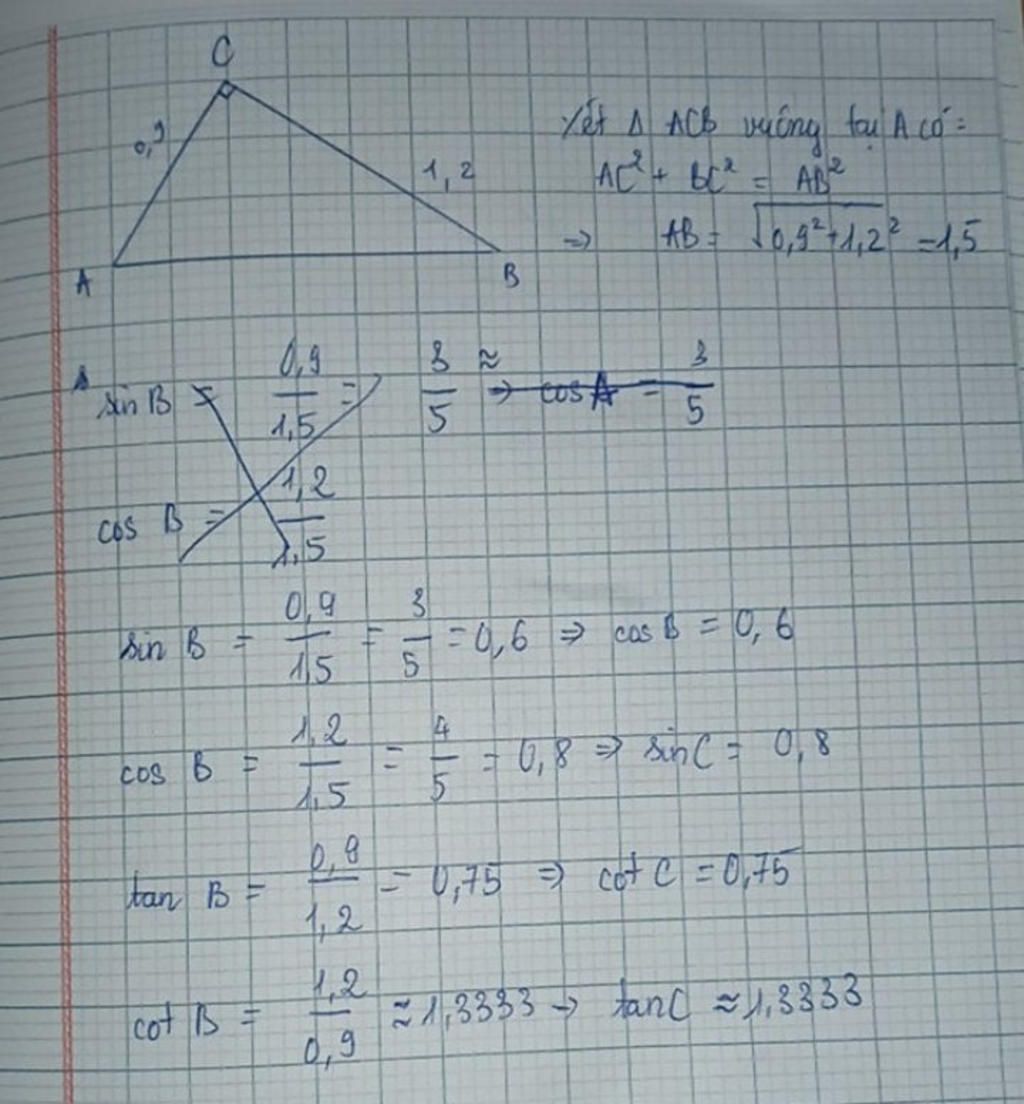 C
0,9
1,2
A
B
Xét Δ ACB vuông tại A có:
AC² + BC² = AB²
=> AB = √0,9²+1,2² = 1,5
sin B = 0,9/1,5 = 3/5 ≈ => cos A = 3/5
cos B = 1,2/1,5
sin B = 0,9/1,5 = 3/5 = 0,6 => cos B = 0,6
cos B = 1,2/1,5 = 4/5 = 0,8 => sin C = 0,8
tan B = 0,9/1,2 = 0,75 => cot C = 0,75
cot B = 1,2/0,9 ≈ 1,3333 -> tan C ≈ 1,3333